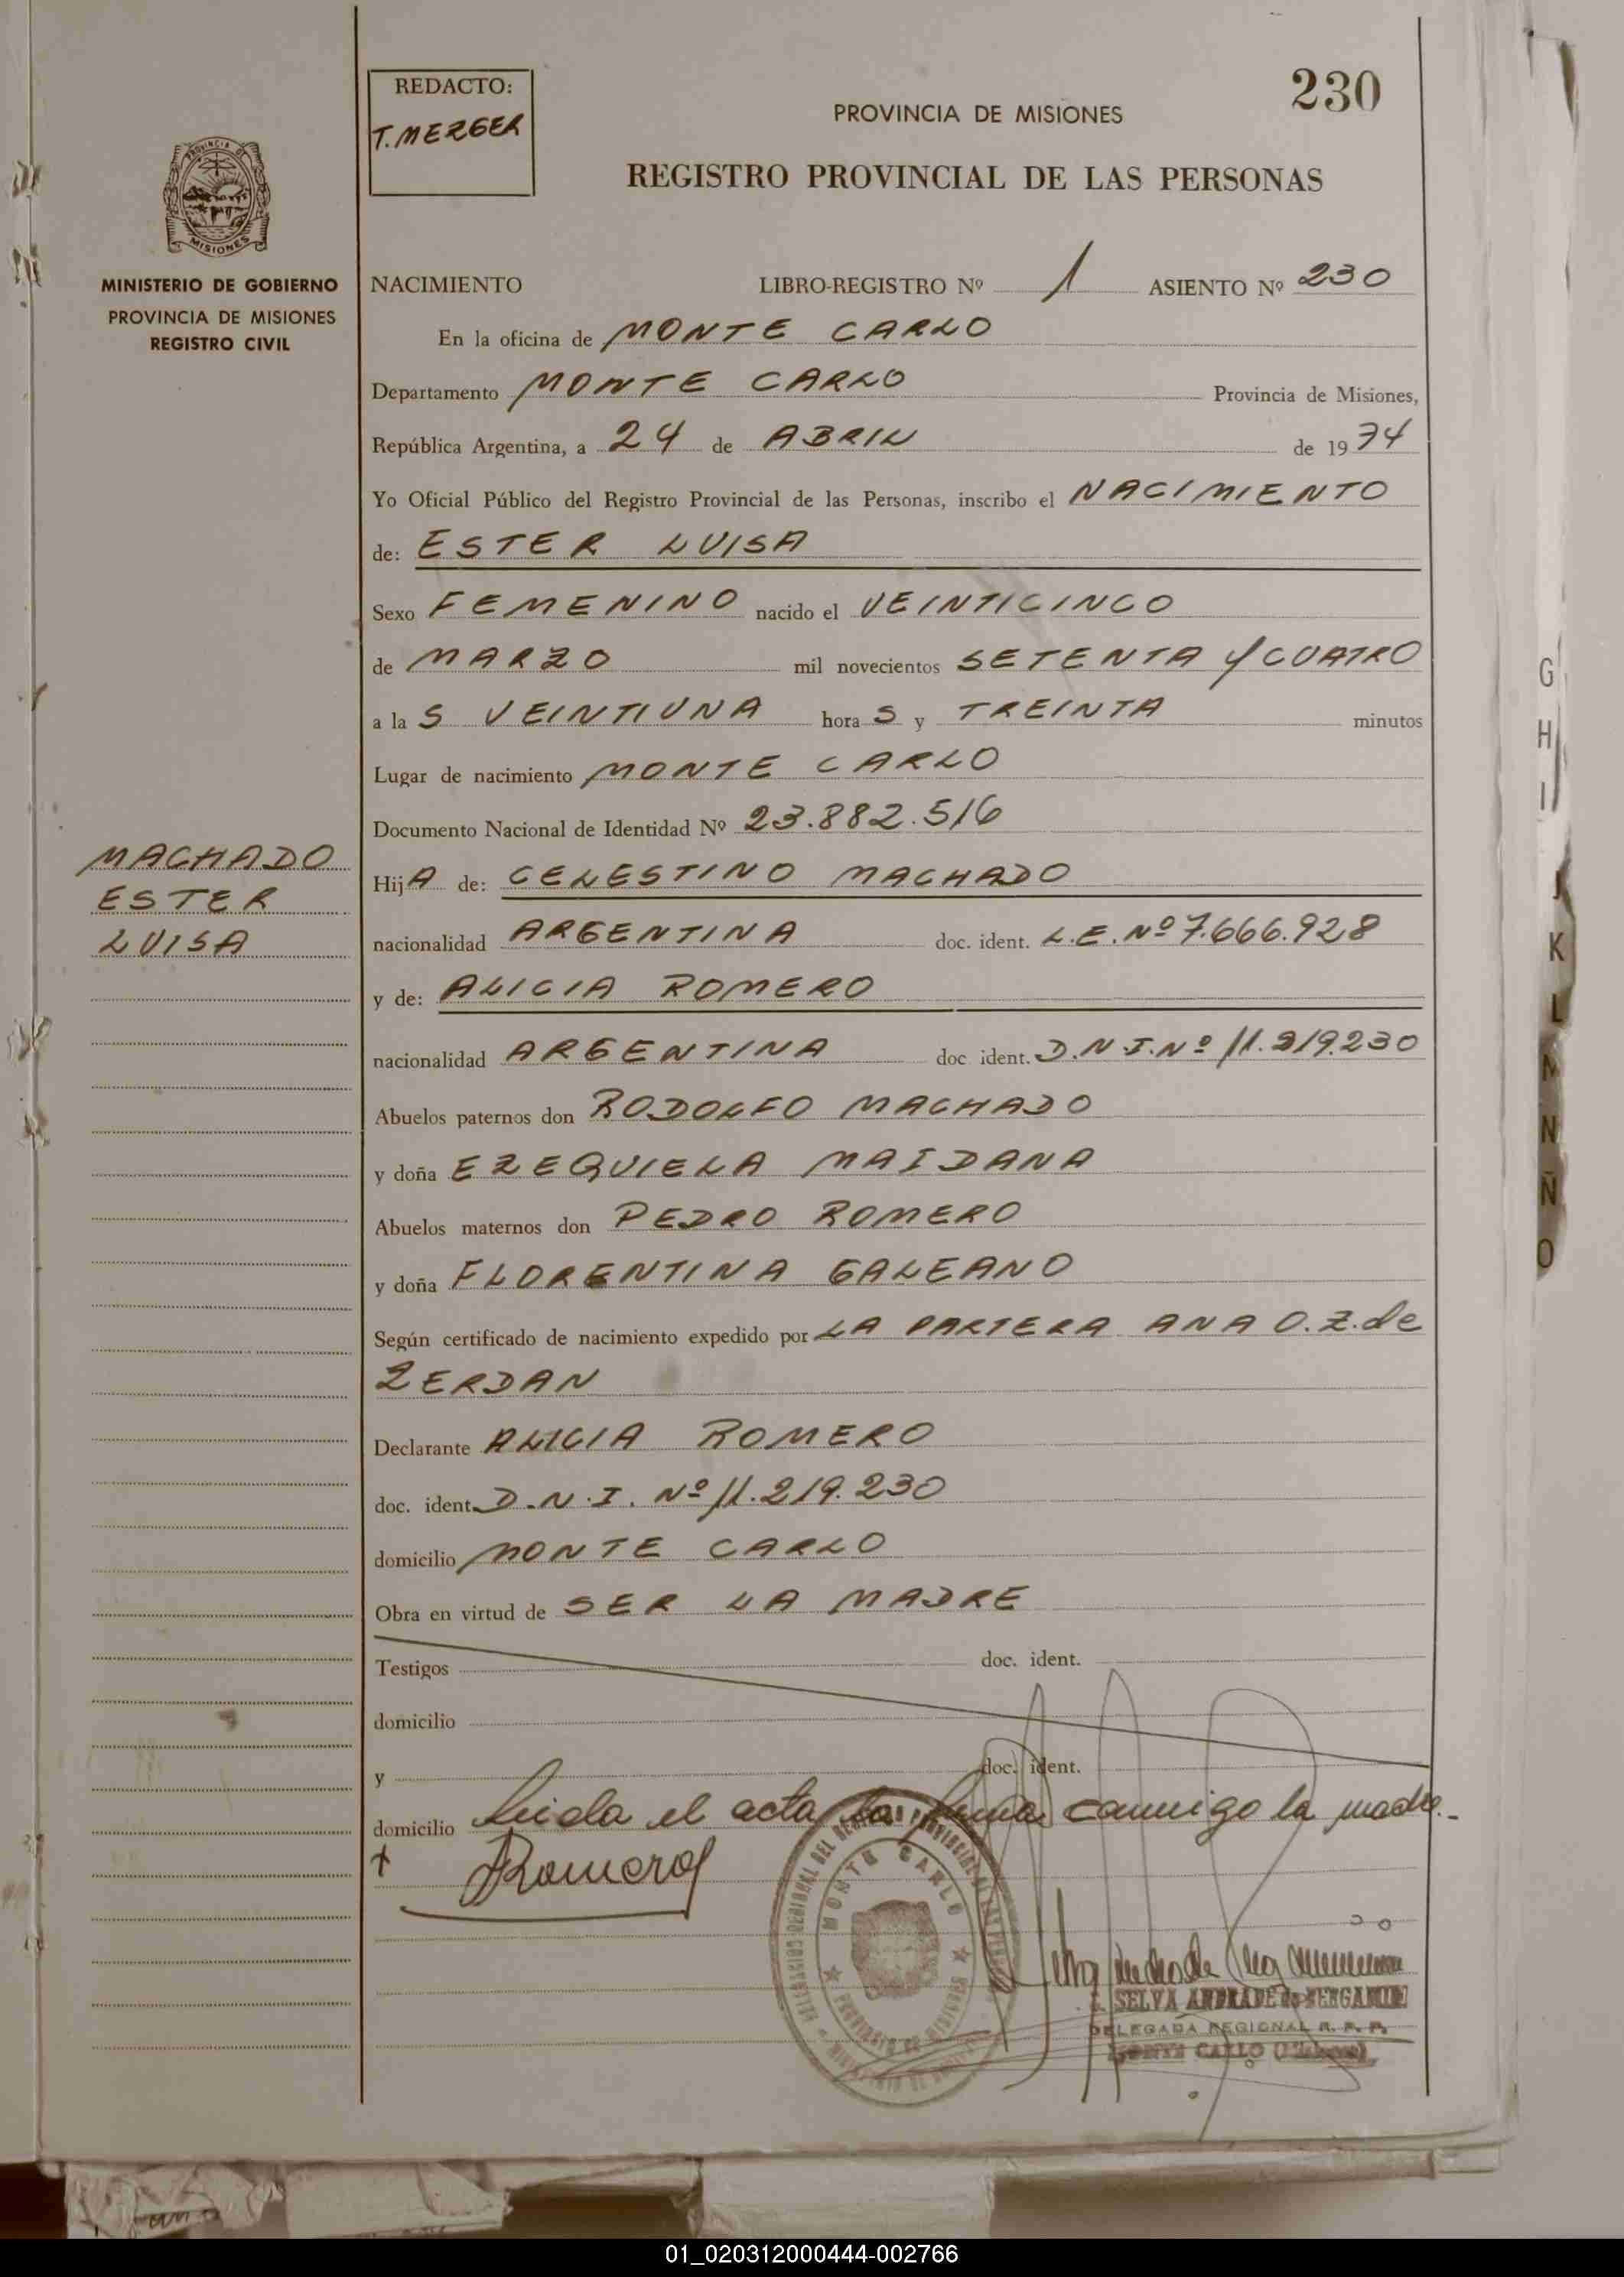 230
REDACTO:
T. MERGER
PROVINCIA DE MISIONES
REGISTRO PROVINCIAL DE LAS PERSONAS
MISIONES
MINISTERIO DE GOBIERNO
PROVINCIA DE MISIONES
REGISTRO CIVIL
NACIMIENTO LIBRO-REGISTRO Nº 1 ASIENTO Nº 230
En la oficina de MONTE CARLO
Departamento MONTE CARLO Provincia de Misiones,
República Argentina, a 24 de ABRIL de 1974
Yo Oficial Público del Registro Provincial de las Personas, inscribo el NACIMIENTO
de: ESTER LUISA
Sexo FEMENINO nacido el VEINTICINCO
de MARZO mil novecientos SETENTA Y CUATRO
a la S VEINTIUNA hora S y TREINTA minutos
Lugar de nacimiento MONTE CARLO
Documento Nacional de Identidad Nº 23.882.516
MACHADO
ESTER
LUISA
HijA de: CELESTINO MACHADO
nacionalidad ARGENTINA doc. ident. L.E. Nº 7.666.928
y de: ALICIA ROMERO
nacionalidad ARGENTINA doc. ident. D.N.I. Nº 11.219.230
Abuelos paternos don RODOLFO MACHADO
y doña EZEQUIELA MAIDANA
Abuelos maternos don PEDRO ROMERO
y doña FLORENTINA GALEANO
Según certificado de nacimiento expedido por LA PARTERA ANA O. Z. de
ZERDAN
Declarante ALICIA ROMERO
doc. ident. D.N.I. Nº 11.219.230
domicilio MONTE CARLO
Obra en virtud de SER LA MADRE
Testigos doc. ident.
domicilio
y doc. ident.
domicilio Leida el acta la firma conmigo la madre.-
Romero
MONTE CARLO
SELVA ANDRADE de BERGAMIN
DELEGADA REGIONAL R. P. P.
MONTE CARLO (Misiones)
G
H
I
J
K
L
M
N
Ñ
O
01_020312000444-002766